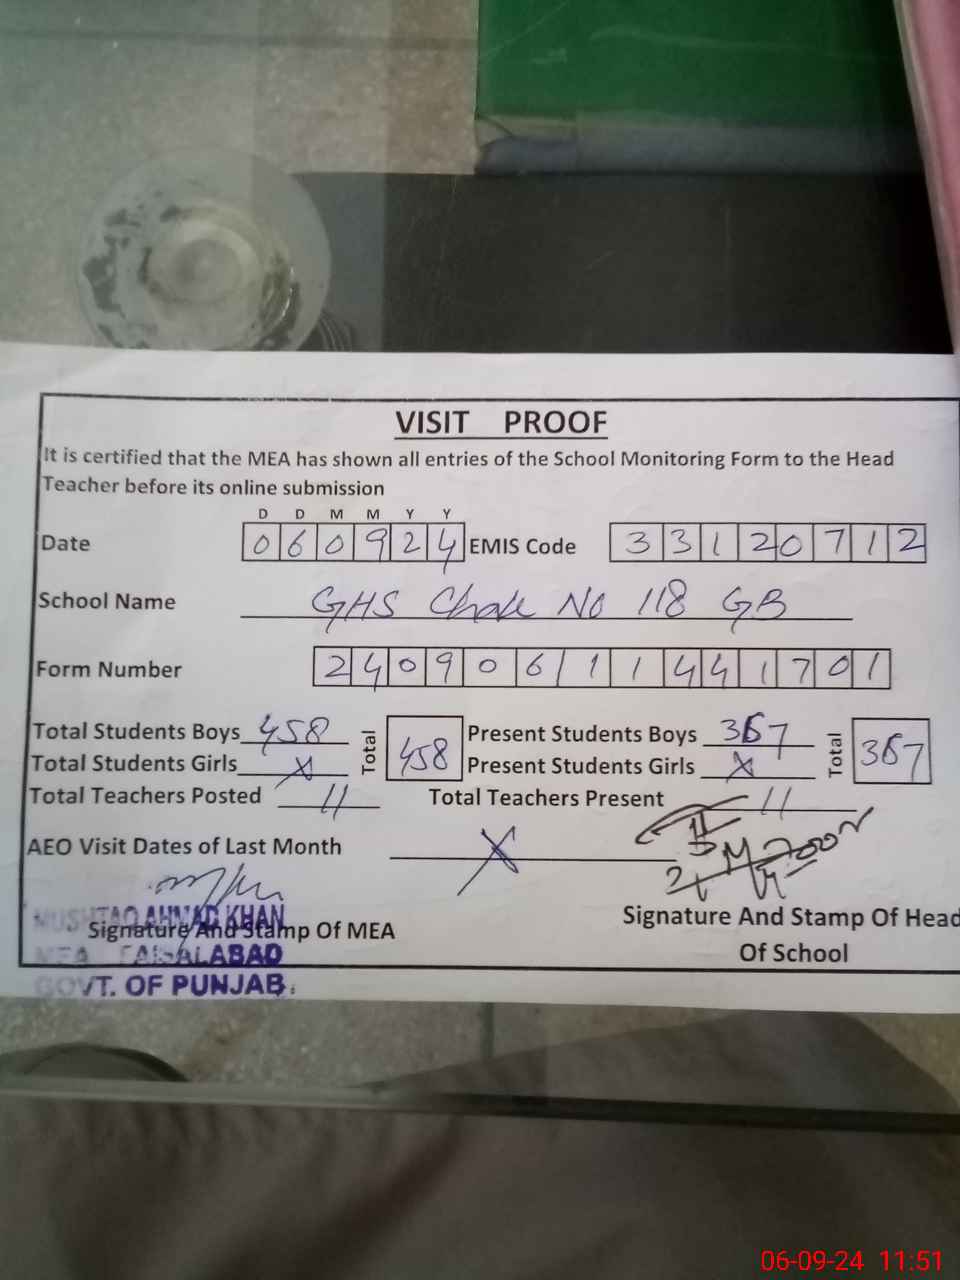 VISIT PROOF
It is certified that the MEA has shown all entries of the School Monitoring Form to the Head
Teacher before its online submission
D D M M Y Y
Date 0 6 0 9 2 4 EMIS Code 3 3 1 2 0 7 1 2
School Name GHS Chak No 118 GB
Form Number 2 4 0 9 0 6 1 1 4 4 1 7 0 1
Total Students Boys 458 Total 458 Present Students Boys 367 Total 367
Total Students Girls X Present Students Girls X
Total Teachers Posted 11 Total Teachers Present 11
AEO Visit Dates of Last Month X
MUSHTAQ AHMAD KHAN
Signature And Stamp Of MEA
Signature And Stamp Of Head
Of School
MEA FAISALABAD
GOVT. OF PUNJAB.
06-09-24 11:51